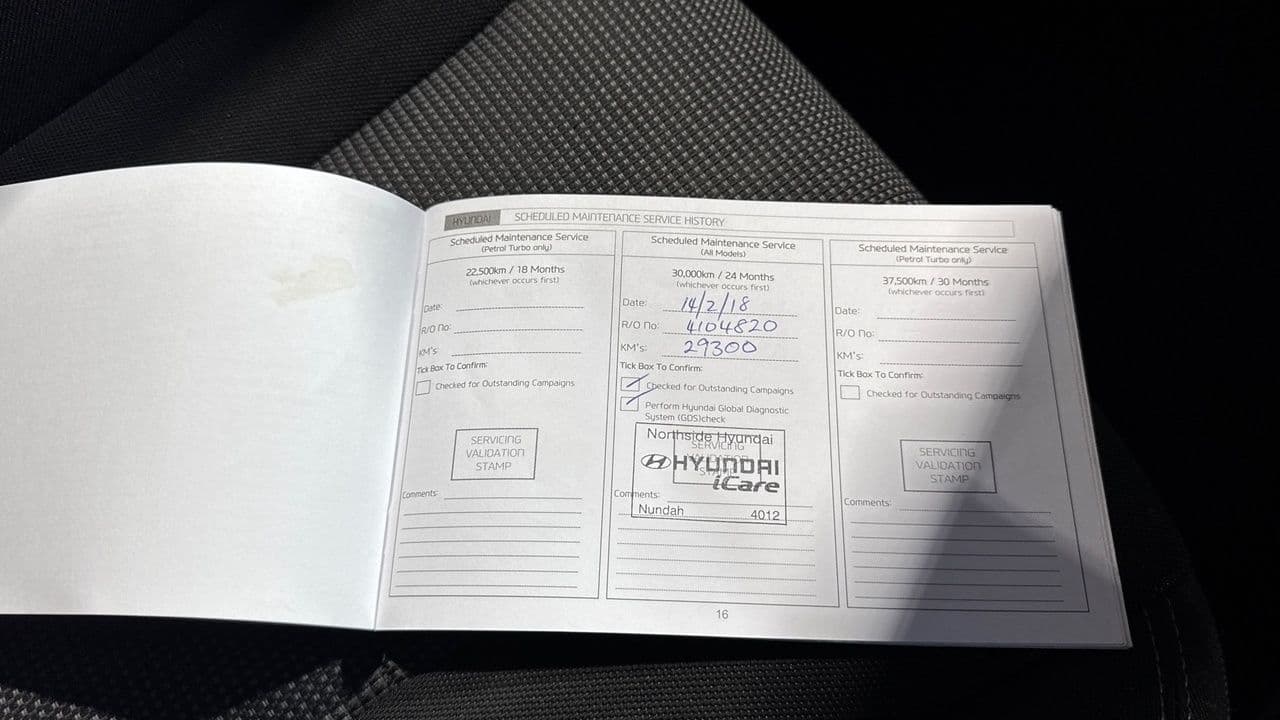 HYUNDAI SCHEDULED MAINTENANCE SERVICE HISTORY
Scheduled Maintenance Service
(Petrol Turbo only)
22,500km / 18 Months
(whichever occurs first)
Date:
R/O No:
KM's:
Tick Box To Confirm:
Checked for Outstanding Campaigns
SERVICING
VALIDATION
STAMP
Comments:
Scheduled Maintenance Service
(All Models)
30,000km / 24 Months
(whichever occurs first)
Date: 14/2/18
R/O No: 4104820
KM's: 29300
Tick Box To Confirm:
Checked for Outstanding Campaigns
Perform Hyundai Global Diagnostic
System (GDS)check
Northside Hyundai
SERVICING
VALIDATION
STAMP
HYUNDAI
iCare
Comments:
Nundah 4012
Scheduled Maintenance Service
(Petrol Turbo only)
37,500km / 30 Months
(whichever occurs first)
Date:
R/O No:
KM's:
Tick Box To Confirm:
Checked for Outstanding Campaigns
SERVICING
VALIDATION
STAMP
Comments:
16